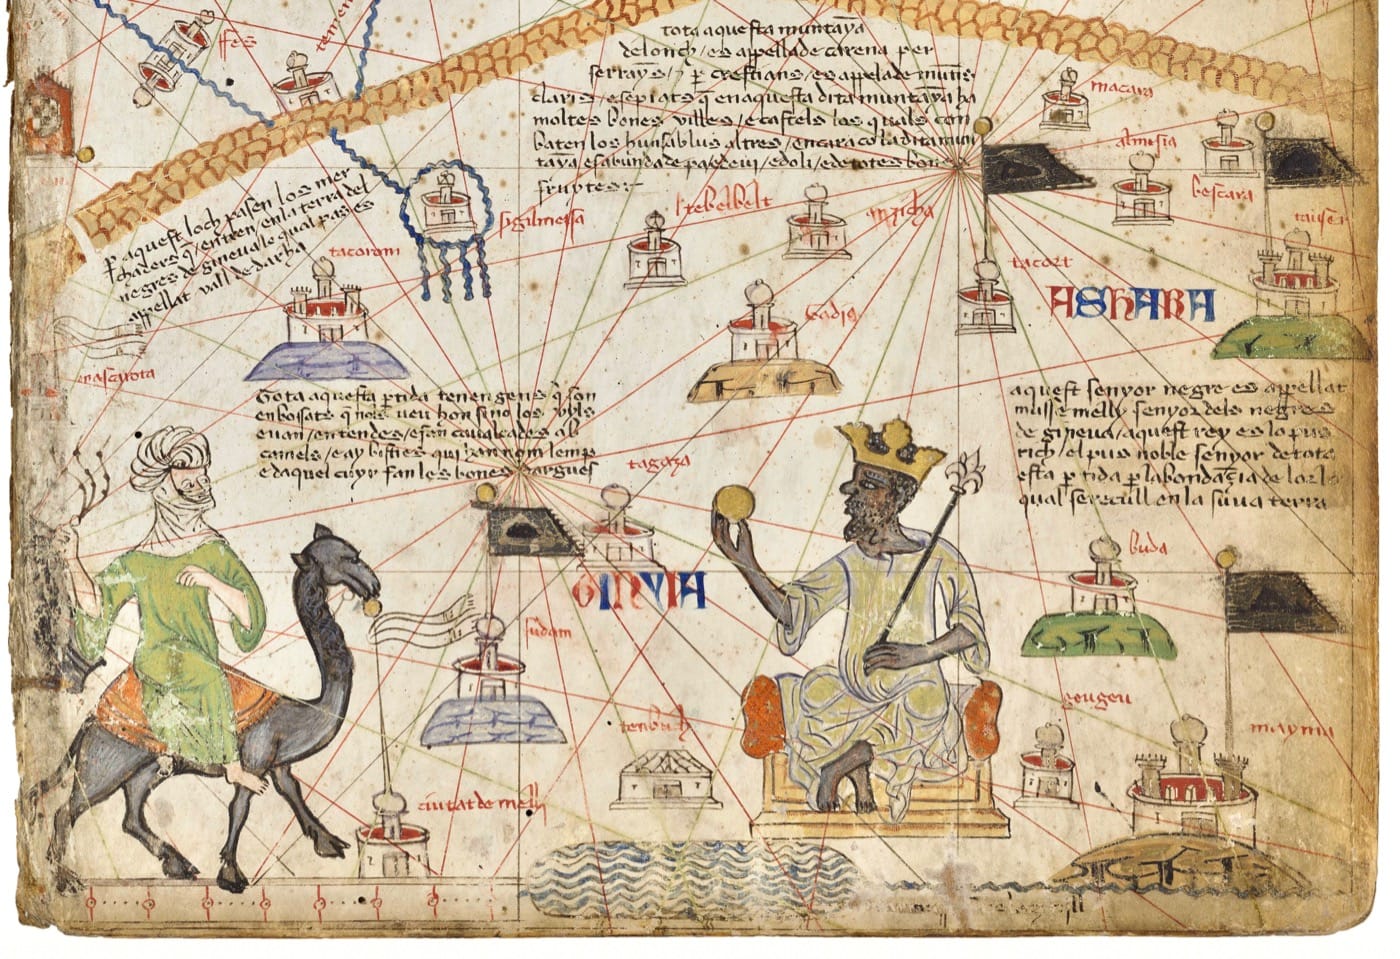 fes
tota aquesta muntaya
de lonch / es appellade carena per
serrayns / ⁊ p crestians / es appelade muns
claris / e sepiats q̄ en aquesta dita muntaya ha
moltes bones villes / e castels los quals con
baten los huns ab lus altres / encara co la dita mun
taya es abunda de pa e de vi / e doli / e de totes bones
fruytes :~
macara
almisia
bescara
p aquest loch pasen los mer
chaders q̄ / entren / en la terra del
negres de gineua le qual pas es
appellat vall de darha
tacorom
sigilmessa
tebelbelt
anzicha
tacort
ASHARA
Tota aquesta ptida tenen gens q̄ son
enbossats q̄ nols veu hon sino los vyls
e van / en tendes / e fan caualcades ab
camels / e ay bisties qui han nom lemp
e daquel cuyr fan les bones dargues
tagaza
aquest senyor negre es appellat
musse melly senyor dels negres
de gineua / aquest rey es lo pus
rich / el pus noble senyor de tota
esta ptida p labondacia de lor lo
qual se recull en la suua terra
GINYIA
buda
sudam
tenbuch
gougou
mayma
ciutat de melly